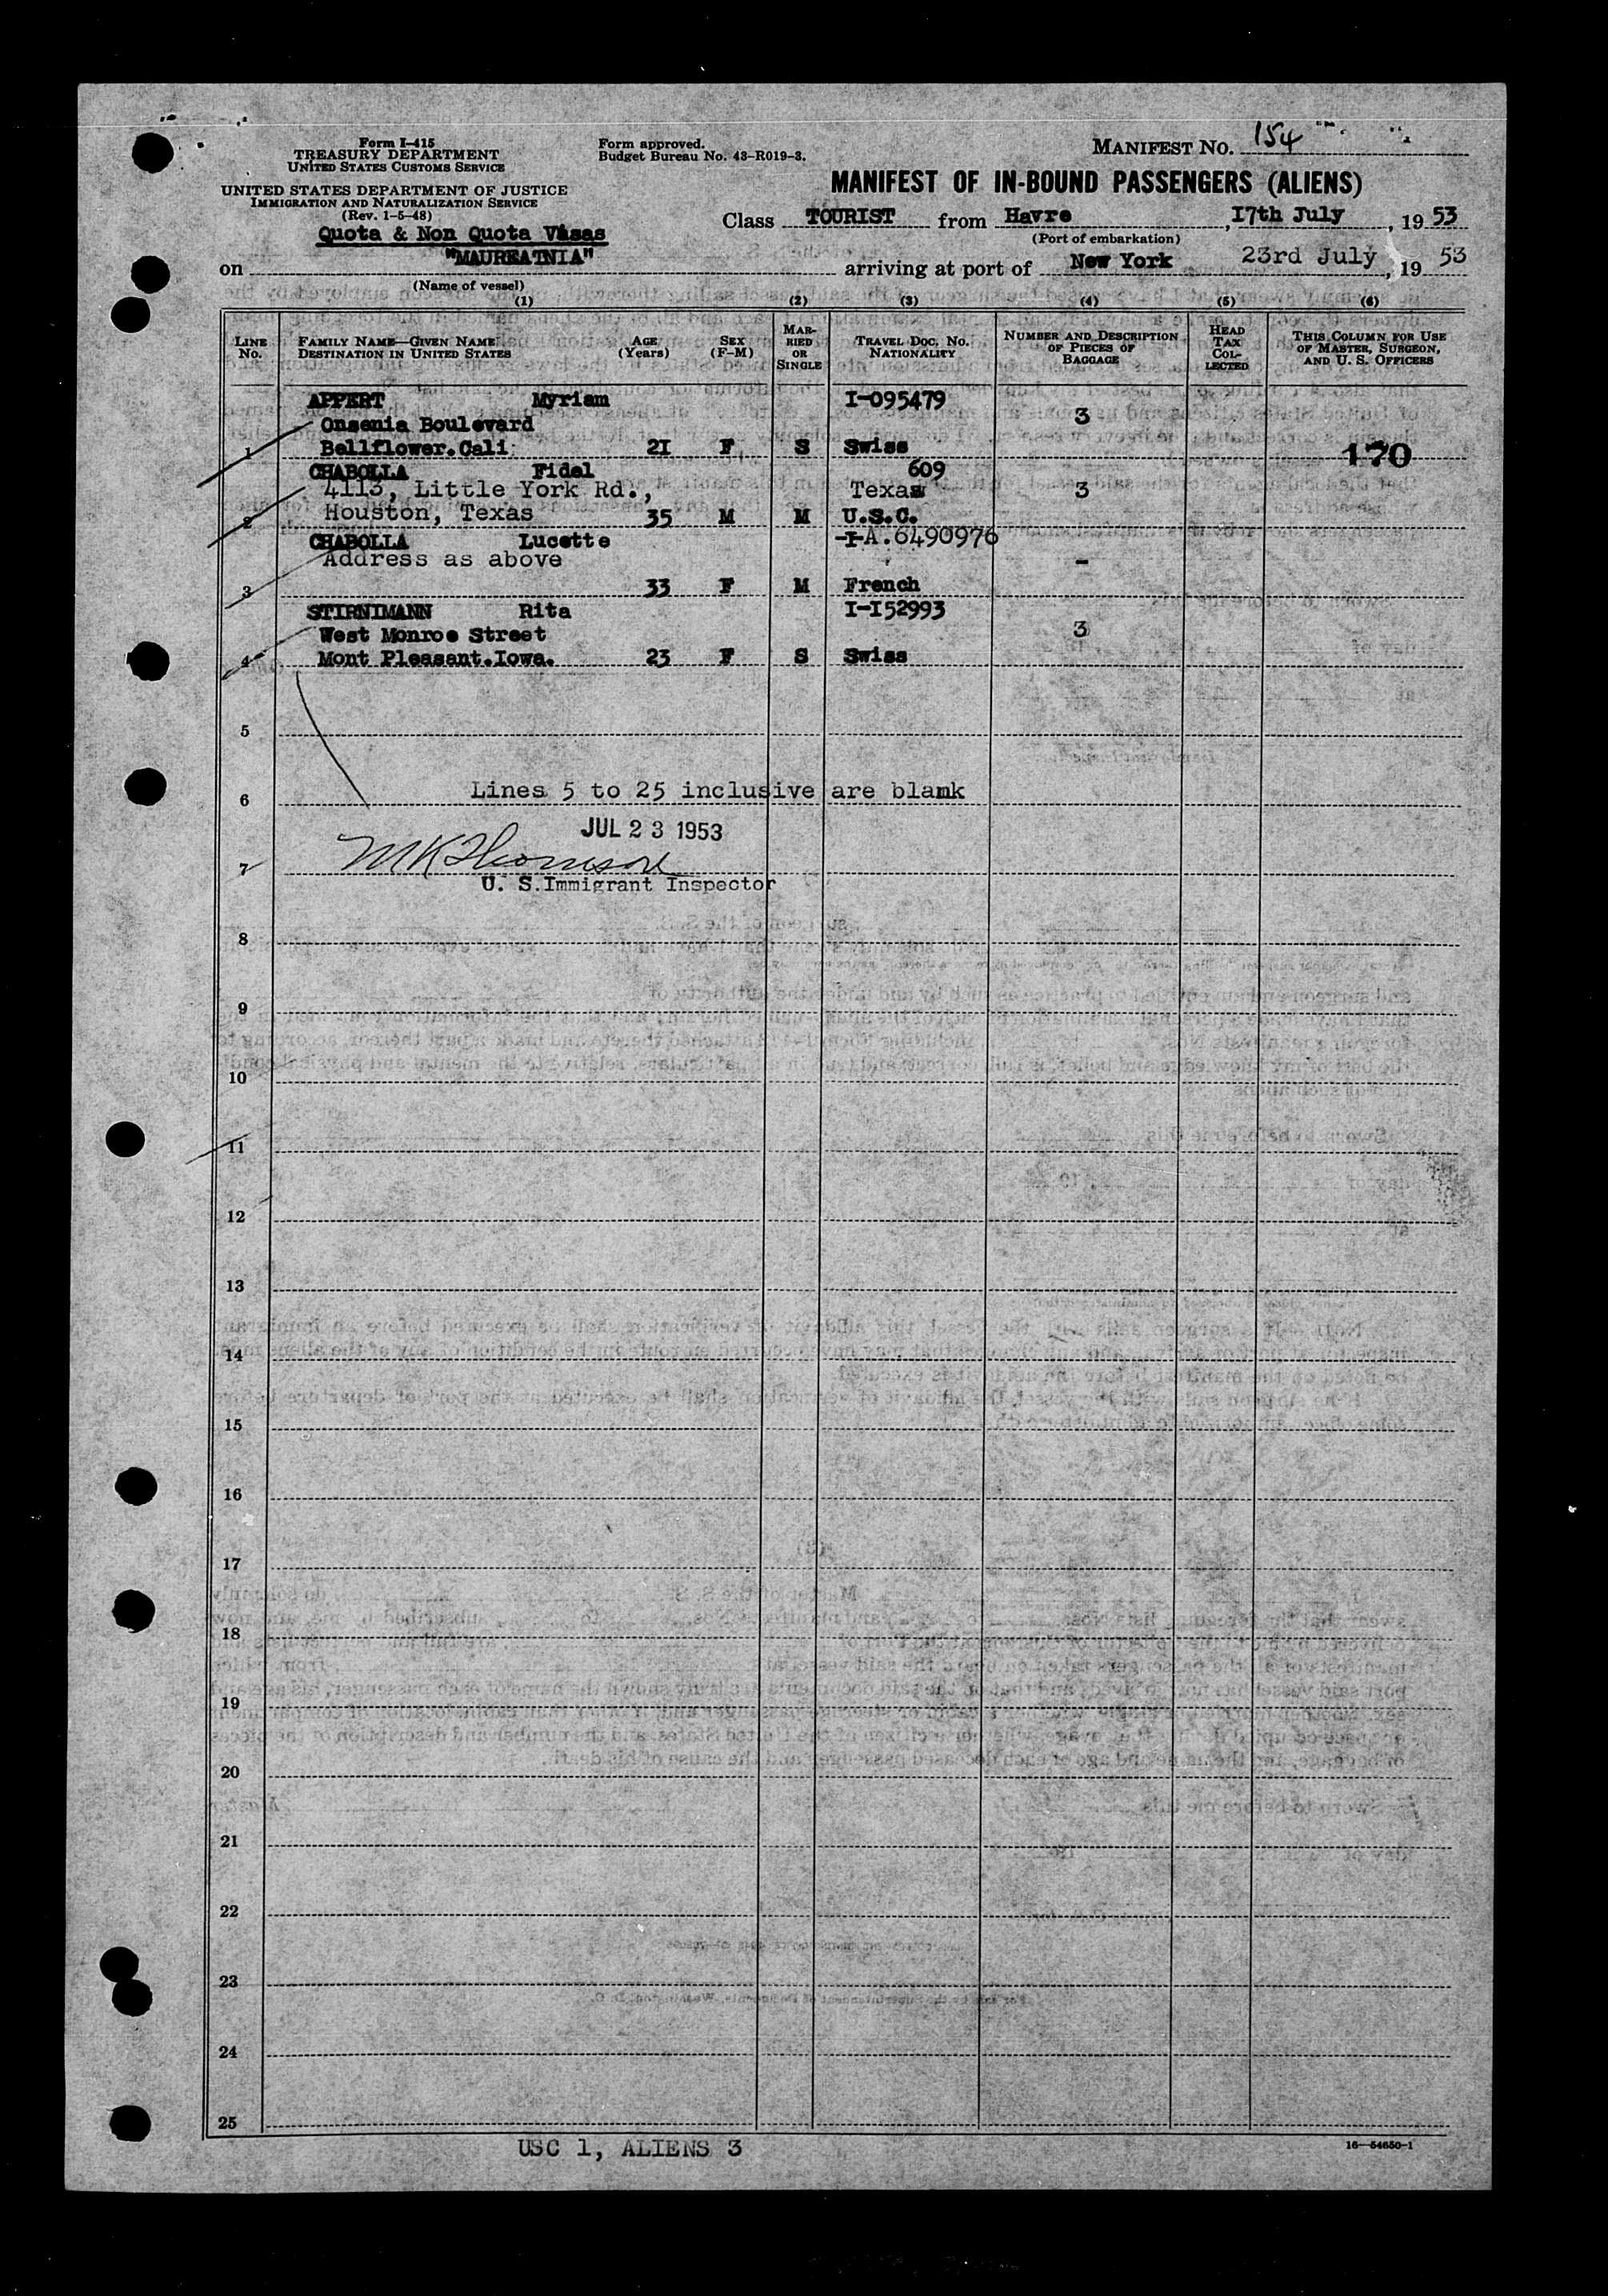 Form I-415
TREASURY DEPARTMENT
UNITED STATES CUSTOMS SERVICE
UNITED STATES DEPARTMENT OF JUSTICE
IMMIGRATION AND NATURALIZATION SERVICE
(Rev. 1-5-48)
Form approved.
Budget Bureau No. 43-R019-3.
MANIFEST NO. 154
MANIFEST OF IN-BOUND PASSENGERS (ALIENS)
Quota & Non Quota Visas
Class TOURIST from Havre, I7th July, 1953
(Port of embarkation)
on "MAUREATNIA" arriving at port of New York 23rd July, 1953
(Name of vessel)
(1) (2) (3) (4) (5) (6)
LINE No. FAMILY NAME—GIVEN NAME DESTINATION IN UNITED STATES AGE (Years) SEX (F-M) MARRIED OR SINGLE TRAVEL DOC. NO. NATIONALITY NUMBER AND DESCRIPTION OF PIECES OF BAGGAGE HEAD TAX COLLECTED THIS COLUMN FOR USE OF MASTER, SURGEON, AND U. S. OFFICERS
APPERT Myriam I-095479
Onsenia Boulevard 3
1 Bellflower.Cali 2I F S Swiss 170
CHABOLLA Fidel 609
4113, Little York Rd., Texas 3
2 Houston, Texas 35 M M U.S.C.
CHABOLLA Lucette -I-A.6490976
Address as above -
3 33 F M French
STIRNIMANN Rita I-I52993
West Monroe Street 3
4 Mont Pleasant.Iowa. 23 F S Swiss
5
6 Lines 5 to 25 inclusive are blank
JUL 23 1953
7 MKThomson
U. S.Immigrant Inspector
8
9
10
11
12
13
14
15
16
17
18
19
20
21
22
23
24
25
USC 1, ALIENS 3
16—54650-1